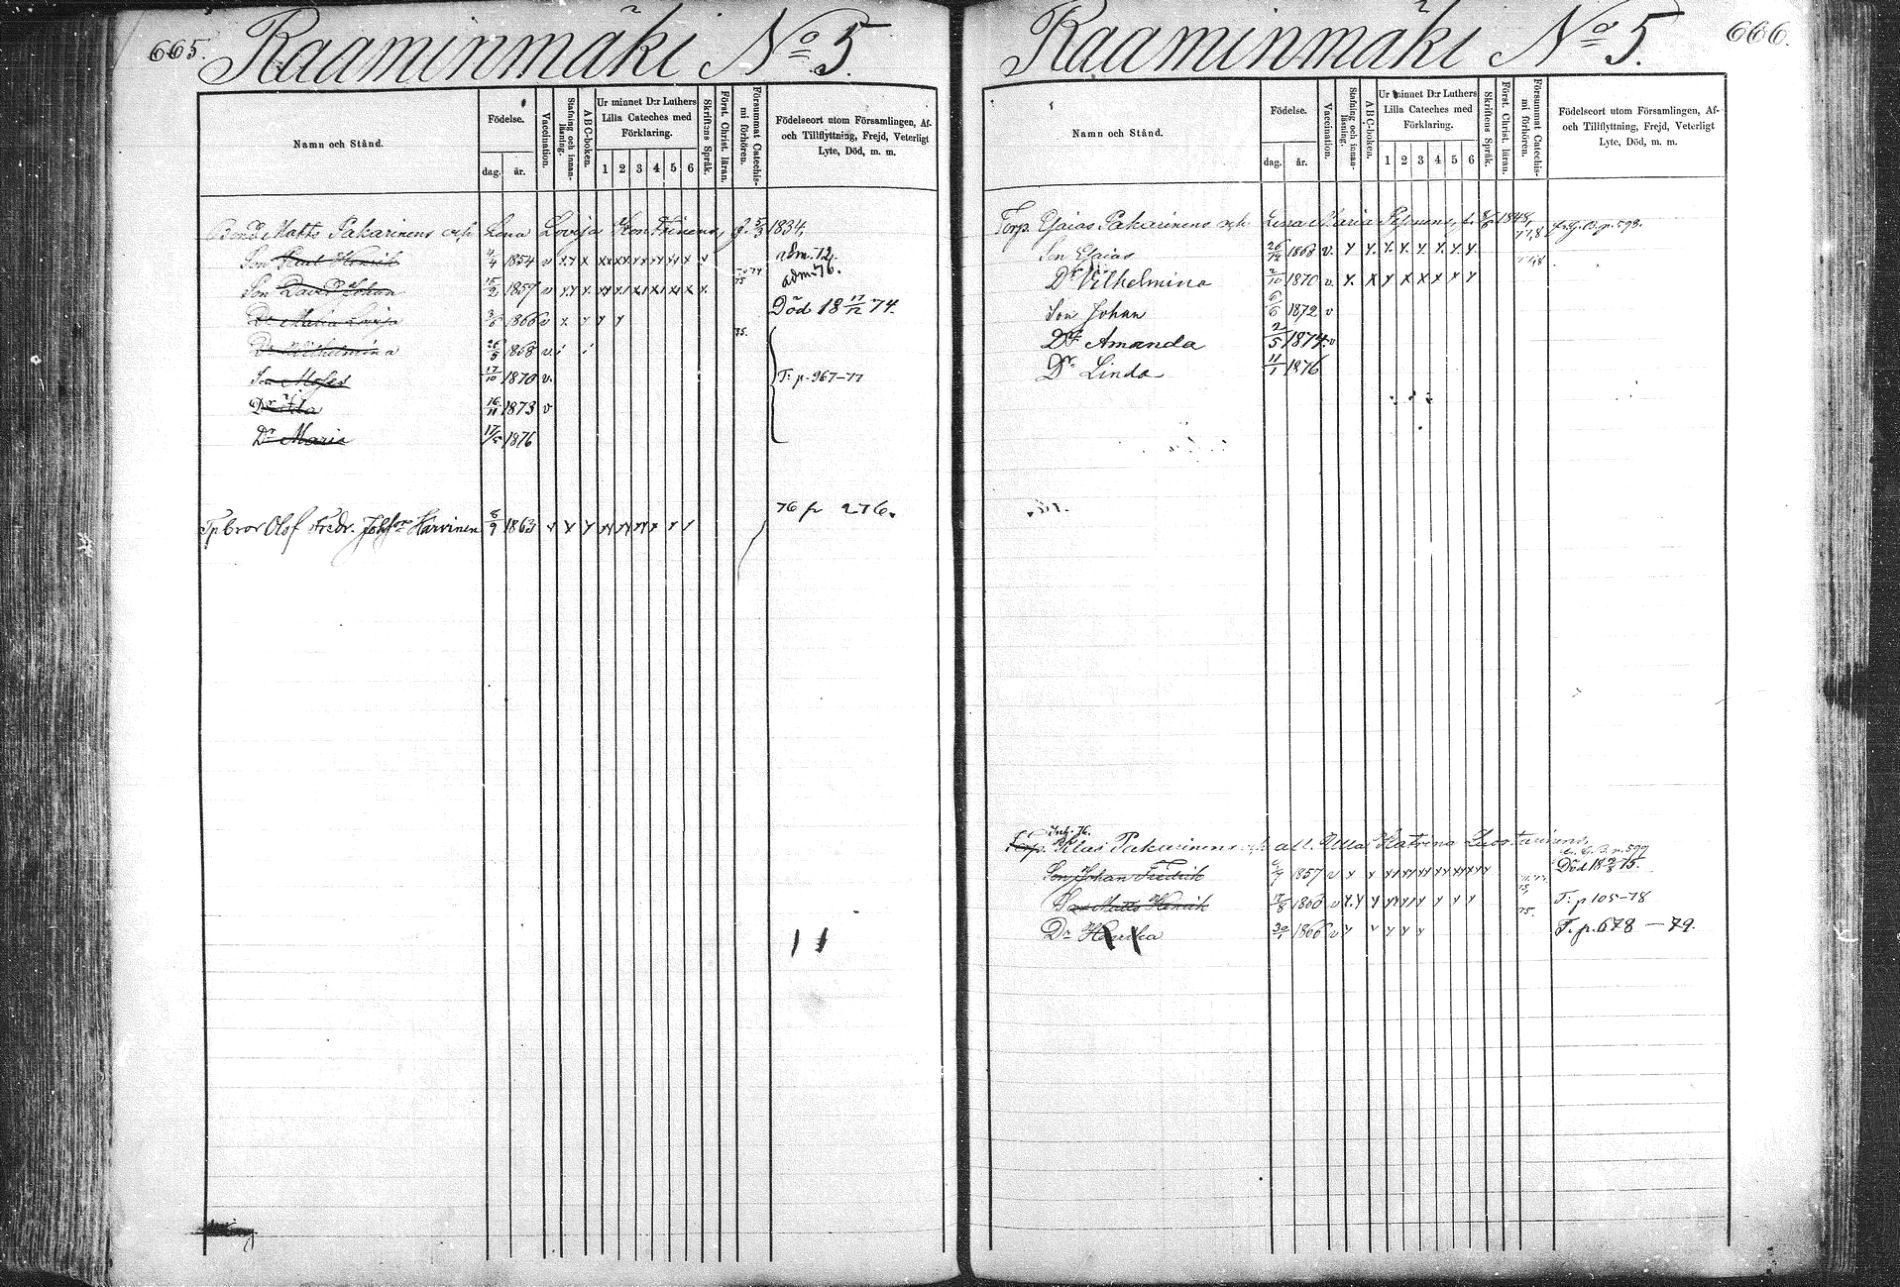 665. Raaminmäki No 5.
Namn och Stånd.
Födelse.
dag. år.
Vaccination.
Stafning och innanläsning.
ABC-boken.
Ur minnet D:r Luthers
Lilla Cateches med
Förklaring.
1 2 3 4 5 6
Skriftens Språk.
Först. Christ. läran.
Försummat Catechismi förhören.
Födelseort utom Församlingen, Af-
och Tillflyttning, Frejd, Veterligt
Lyte, Död, m. m.
Bond. Matts Pakarinens och Lena Lovisa f. 5/3 1834,
Son Henrik 4/4 1854 v adm. 72.
Son David Johan 15/2 1857 v adm 76.
Dr Maria Lovisa 3/6 1866 v Död 18 17/12 74.
Dr Wilhelmina 26/5 1868 v.
Son Moses 17/10 1870 v. T: p. 967-77
Dr Ida 16/11 1873 v
Dr Maria 17/5 1876
Olof Fredr. Harvinen 8/9 1863 76 fr 276.
666. Raaminmäki No 5.
Namn och Stånd.
Födelse.
dag. år.
Vaccination.
Stafning och innanläsning.
ABC-boken.
Ur minnet D:r Luthers
Lilla Cateches med
Förklaring.
1 2 3 4 5 6
Skriftens Språk.
Först. Christ. läran.
Försummat Catechismi förhören.
Födelseort utom Församlingen, Af-
och Tillflyttning, Frejd, Veterligt
Lyte, Död, m. m.
Torp. Esaias Pakarinens och Lena Maria 1848,
Son Esaias 26/12 1868 v.
Dr Vilhelmina 2/10 1870 v.
Son Johan 6/6 1872 v
Dr Amanda 2/5 1874 v
Dr Linda 11/1 1876
Inh. 76.
Torp. Klas Pakarinens Ulla Katrina Luostarinens,
Son Johan Fredrik 1857 v Död 18 75.
Son Matts Henrik 1860 v T: p 105-78
Dr Henrika 1866 v T. p. 678 - 79.